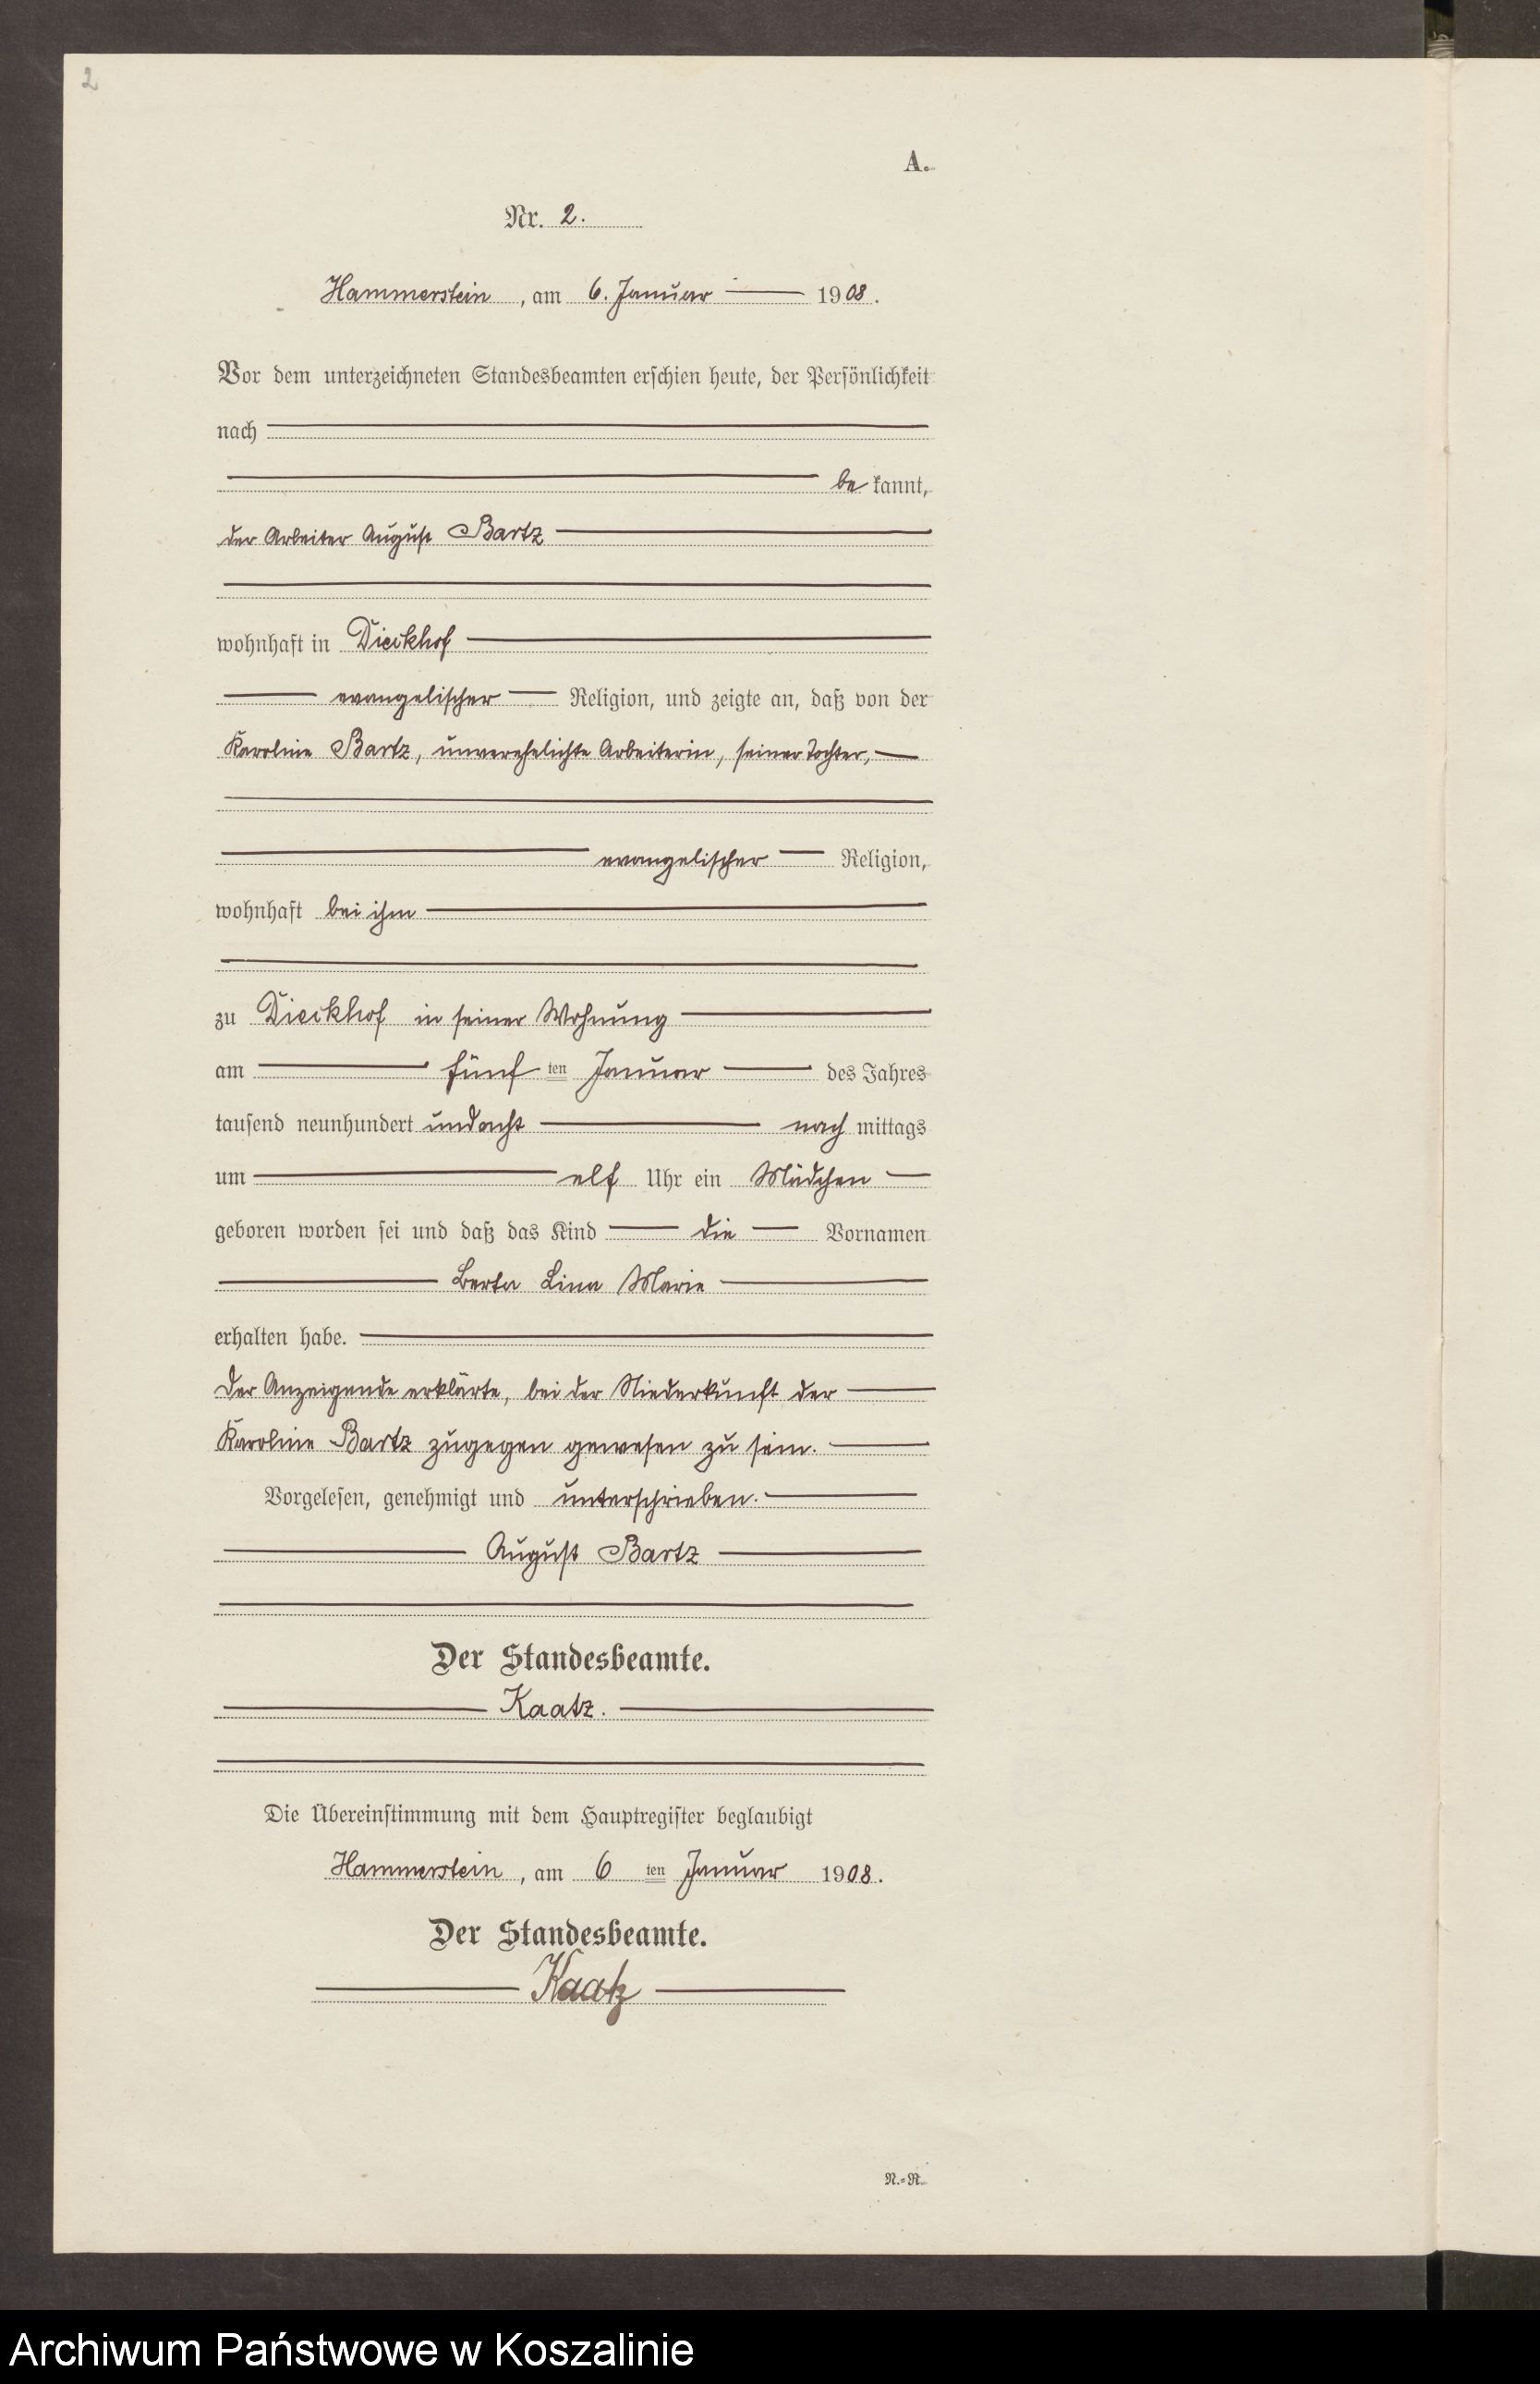 2
A.
Nr. 2.
Hammerstein, am 6. Januar 1908.
Vor dem unterzeichneten Standesbeamten erschien heute, der Persönlichkeit
nach
be kannt,
der Arbeiter August Bartz
wohnhaft in Dieckhof
evangelischer Religion, und zeigte an, daß von der
Karoline Bartz, unverehelichte Arbeiterin, seiner Tochter,
evangelischer Religion,
wohnhaft bei ihm
zu Dieckhof in seiner Wohnung
am fünf ten Januar des Jahres
tausend neunhundert undacht nach mittags
um elf Uhr ein Mädchen
geboren worden sei und daß das Kind die Vornamen
Berta Lina Marie
erhalten habe.
Der Anzeigende erklärte, bei der Niederkunft der
Karoline Bartz zugegen gewesen zu sein.
Vorgelesen, genehmigt und unterschrieben.
August Bartz
Der Standesbeamte.
Kaatz.
Die Übereinstimmung mit dem Hauptregister beglaubigt
Hammerstein, am 6 ten Januar 1908.
Der Standesbeamte.
Kaatz
N.=R.
Archiwum Państwowe w Koszalinie